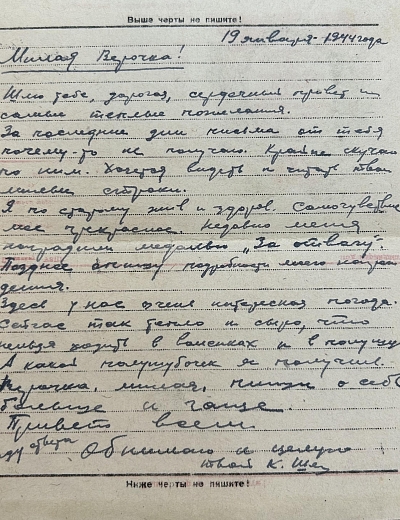 Выше черты не пишите!
19 января - 1944 года
Милая Верочка!
Шлю тебе, дорогая, сердечный привет и
самые теплые пожелания.
За последние дни письма от тебя
почему-то не получаю. Крайне скучаю
по ним. Хочется видеть и читать твои
милые строки.
Я по старому жив и здоров. Самочувствие
мое прекрасное. Недавно меня
наградили медалью "За отвагу".
Позднее опишу подробнее моего награ
ждения.
Здесь у нас очень интересная погода.
Сейчас так тепло и сыро, что
нельзя ходить в валенках и в полушу
А какой полушубочек я получил.
Верочка, милая, пиши о себе
больше и чаще.
Привет всем
жду ответа
Обнимаю и целую
твой К.
Ниже черты не пишите!